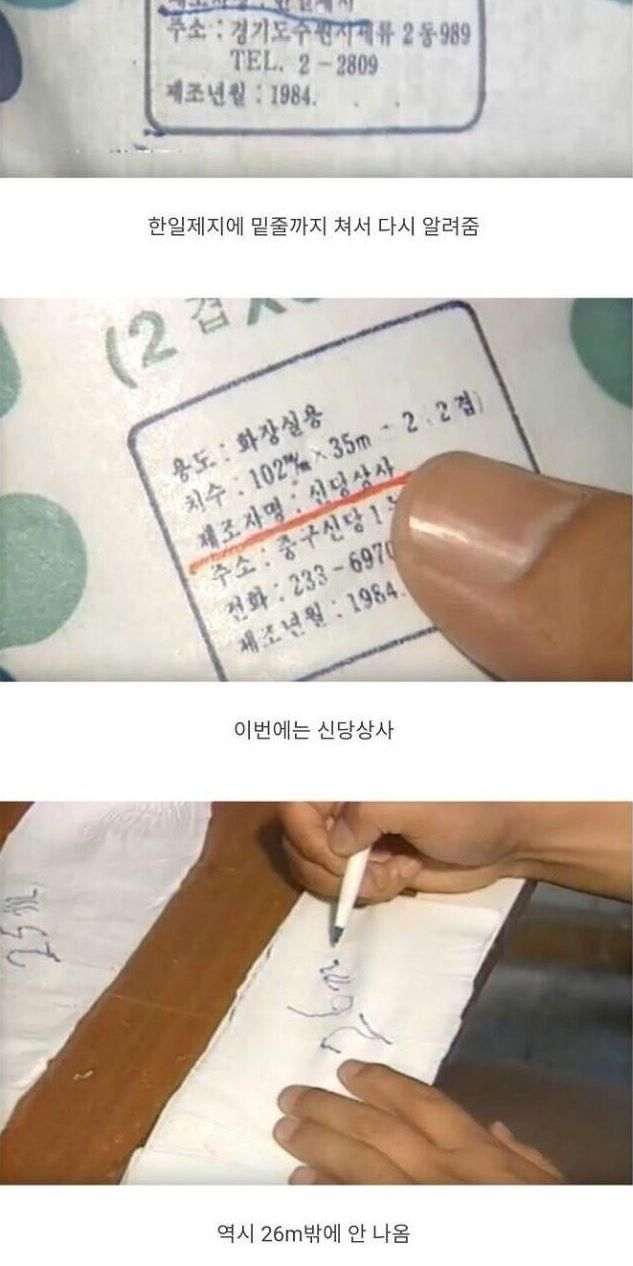 주소 : 경기도수원시세류 2동989
TEL. 2-2809
제조년월 : 1984.
한일제지에 밑줄까지 쳐서 다시 알려줌
(2겹
용도 : 화장실용
치수 : 102m/m × 35m - 2 . 2겹)
제조자명 : 신당상사
주소 : 중구신당1
전화 : 233-6970
제조년월 : 1984.
이번에는 신당상사
25m
역시 26m밖에 안 나옴